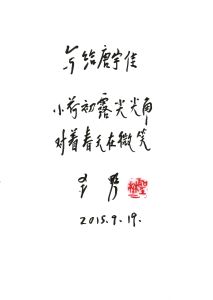 写给唐宇佳
小荷初露尖尖角
对着春天在微笑
2015.9.19.